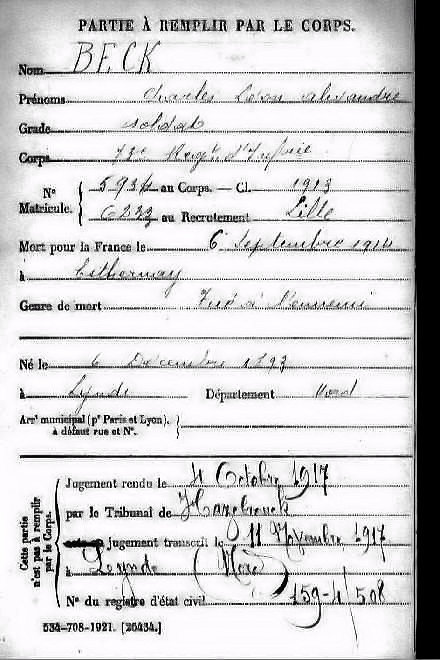 PARTIE À REMPLIR PAR LE CORPS.
Nom BECK
Prénoms Charles Léon Alexandre
Grade soldat
Corps 73e Régt d'Inftrie
Nº Matricule. { 5934 au Corps. — Cl. 1913
6233 au Recrutement Lille
Mort pour la France le 6 Septembre 1914
à Esthernay
Genre de mort Tué à l'ennemi
Né le 6 Décembre 1893
à Lynde Département Nord
Arrt municipal (pr Paris et Lyon), à défaut rue et Nº. }
Cette partie n'est pas à remplir par le Corps.
Jugement rendu le 4 Octobre 1917
par le Tribunal de Hazebrouck
jugement transcrit le 11 Novembre 1917
à Lynde (Nord)
Nº du registre d'état civil 159-4/508
534-708-1921. [26434.]